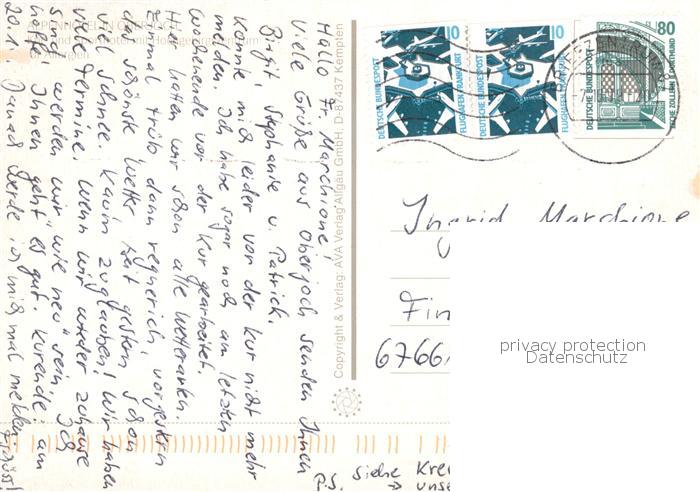 Hallo Fr. Marchione,
Viele Grüße aus Oberjoch senden Ihnen
Birgit, Stephanie u. Patrick.
Konnte mich leider vor der Kur nicht mehr
melden. Ich habe sogar noch am letzten
Wochenende vor der Kur gearbeitet.
Hier hatten wir schon alle Wettervarianten.
Erstmal trüb dann regnerisch, vorgestern
das schönste Wetter seit gestern schon
viel Schnee. Kaum zu glauben! Wir haben
volle Termine. Wenn wir wieder zuhause
sind werden wir "wie neu" sein. Ich
hoffe Ihnen geht es gut. Kurende: am
20.1. Danach werde ich mich mal melden.
Tschüss!
P.S. Siehe
→
Copyright & Verlag: AVA Verlag Allgäu GmbH, D-87437 Kempten
DEUTSCHE BUNDESPOST
FLUGHAFEN FRANKFURT
10
DEUTSCHE BUNDESPOST
FLUGHAFEN FRANKFURT
10
DEUTSCHE BUNDESPOST
ZECHE ZOLLERN DORTMUND
80
BRIEFZENTRUM
Ingrid Marchione
Fin
6766
privacy protection
Datenschutz